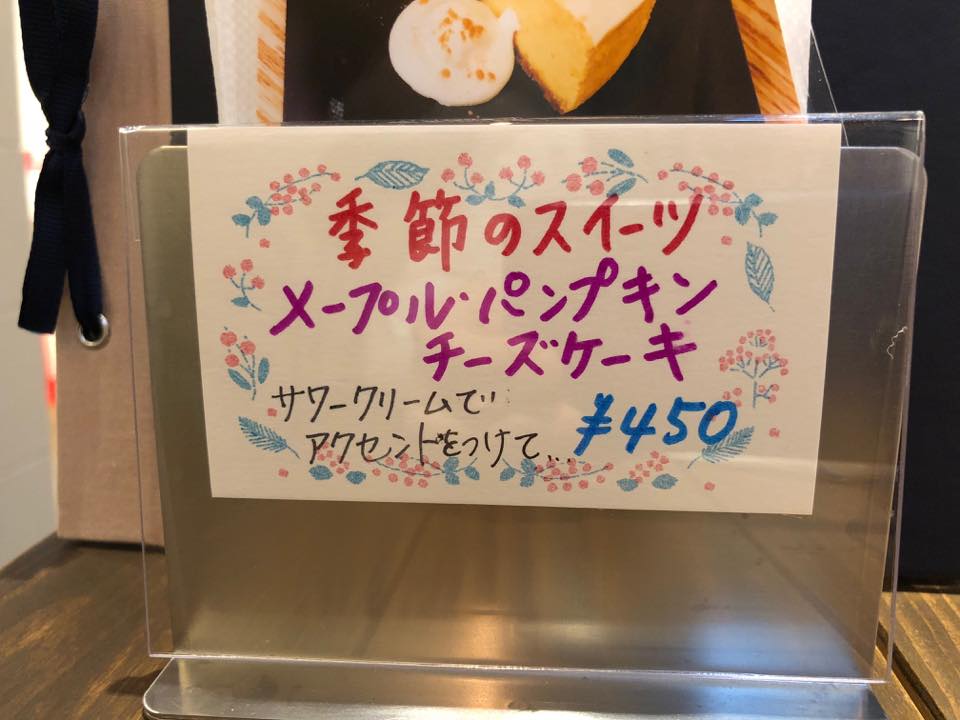 季節のスイーツ
メープル・パンプキン
チーズケーキ
サワークリームで
アクセンドをつけて...
¥450